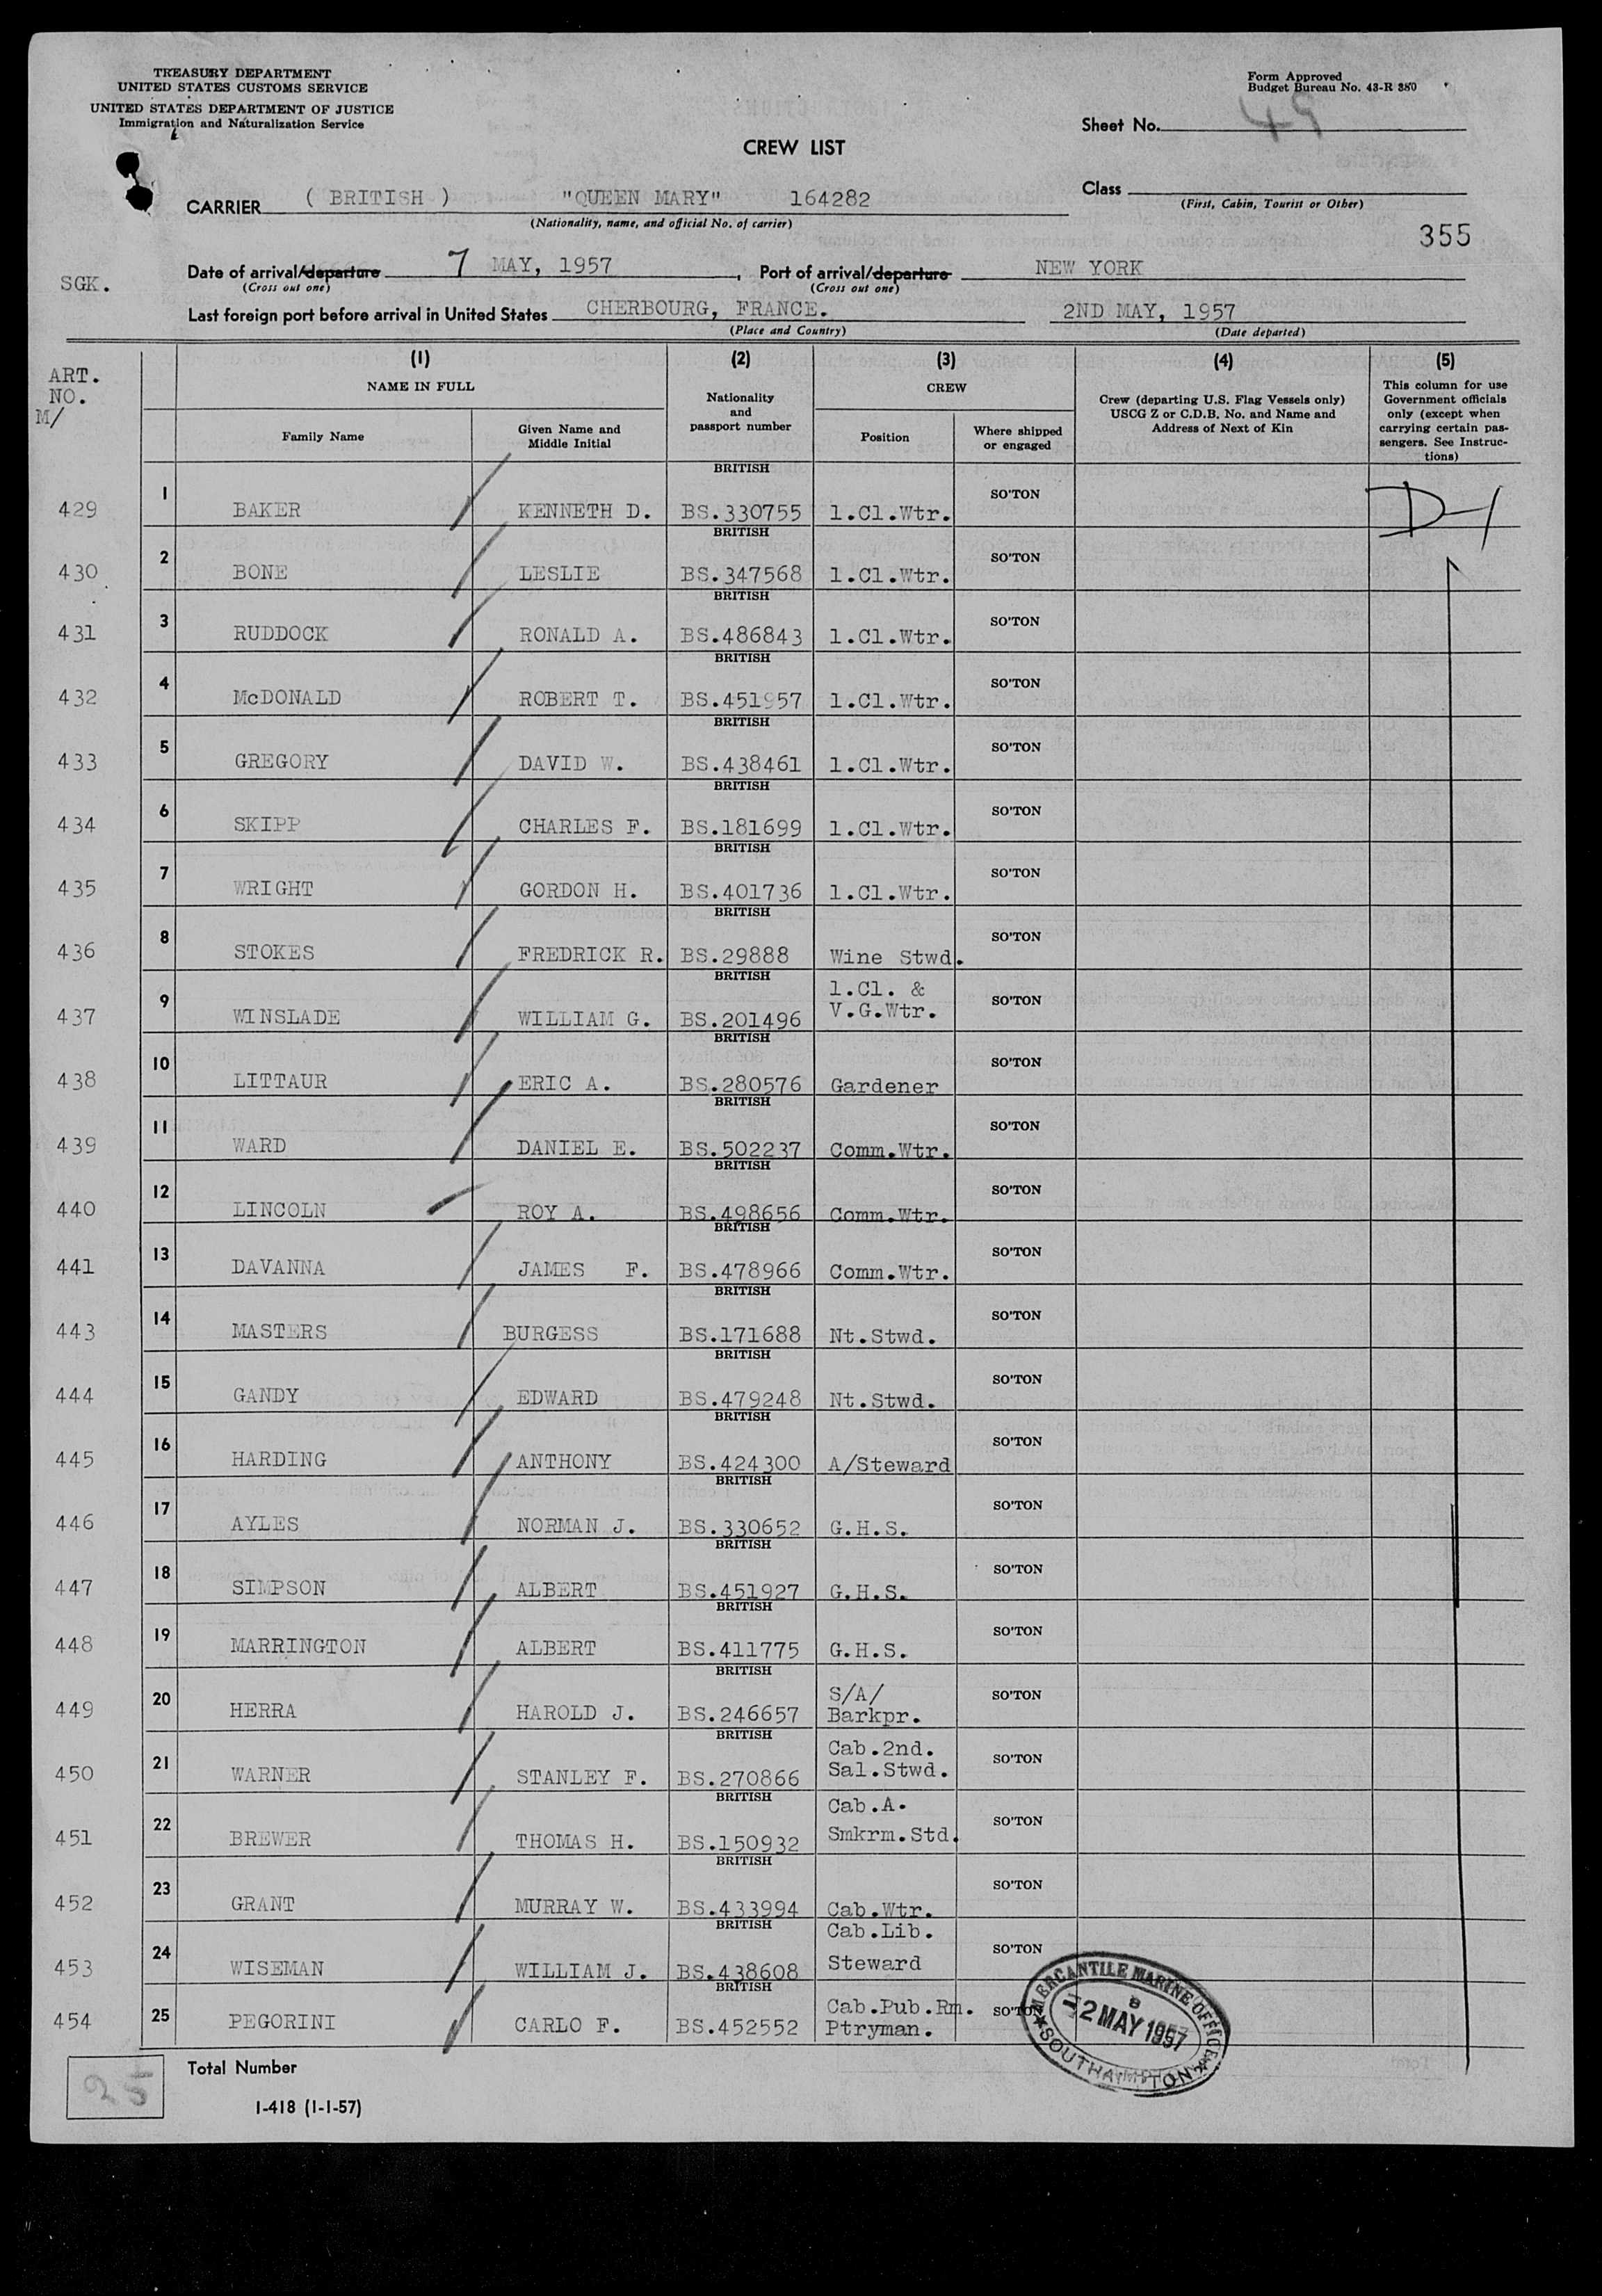 TREASURY DEPARTMENT
UNITED STATES CUSTOMS SERVICE
UNITED STATES DEPARTMENT OF JUSTICE
Immigration and Naturalization Service
Form Approved
Budget Bureau No. 43-R 380
Sheet No. 49
CREW LIST
Class
(First, Cabin, Tourist or Other)
CARRIER ( BRITISH ) "QUEEN MARY" 164282
(Nationality, name, and official No. of carrier)
355
SGK.
Date of arrival/departure 7 MAY, 1957, Port of arrival/departure NEW YORK
(Cross out one) (Cross out one)
Last foreign port before arrival in United States CHERBOURG, FRANCE. 2ND MAY, 1957
(Place and Country) (Date departed)
ART. NO. M/
(1) NAME IN FULL
Family Name
Given Name and Middle Initial
(2) Nationality and passport number
(3) CREW
Position
Where shipped or engaged
(4) Crew (departing U.S. Flag Vessels only) USCG Z or C.D.B. No. and Name and Address of Next of Kin
(5) This column for use Government officials only (except when carrying certain passengers. See Instructions)
429 1 BAKER KENNETH D. BRITISH BS.330755 1.Cl.Wtr. SO'TON D-1
430 2 BONE LESLIE BRITISH BS.347568 1.Cl.Wtr. SO'TON
431 3 RUDDOCK RONALD A. BRITISH BS.486843 1.Cl.Wtr. SO'TON
432 4 McDONALD ROBERT T. BRITISH BS.451957 1.Cl.Wtr. SO'TON
433 5 GREGORY DAVID W. BRITISH BS.438461 1.Cl.Wtr. SO'TON
434 6 SKIPP CHARLES F. BRITISH BS.181699 1.Cl.Wtr. SO'TON
435 7 WRIGHT GORDON H. BRITISH BS.401736 1.Cl.Wtr. SO'TON
436 8 STOKES FREDRICK R. BRITISH BS.29888 Wine Stwd. SO'TON
437 9 WINSLADE WILLIAM G. BRITISH BS.201496 1.Cl. & V.G.Wtr. SO'TON
438 10 LITTAUR ERIC A. BRITISH BS.280576 Gardener SO'TON
439 11 WARD DANIEL E. BRITISH BS.502237 Comm.Wtr. SO'TON
440 12 LINCOLN ROY A. BRITISH BS.498656 Comm.Wtr. SO'TON
441 13 DAVANNA JAMES F. BRITISH BS.478966 Comm.Wtr. SO'TON
443 14 MASTERS BURGESS BRITISH BS.171688 Nt.Stwd. SO'TON
444 15 GANDY EDWARD BRITISH BS.479248 Nt.Stwd. SO'TON
445 16 HARDING ANTHONY BRITISH BS.424300 A/Steward SO'TON
446 17 AYLES NORMAN J. BRITISH BS.330652 G.H.S. SO'TON
447 18 SIMPSON ALBERT BRITISH BS.451927 G.H.S. SO'TON
448 19 MARRINGTON ALBERT BRITISH BS.411775 G.H.S. SO'TON
449 20 HERRA HAROLD J. BRITISH BS.246657 S/A/ Barkpr. SO'TON
450 21 WARNER STANLEY F. BRITISH BS.270866 Cab.2nd. Sal.Stwd. SO'TON
451 22 BREWER THOMAS H. BRITISH BS.150932 Cab.A. Smkrm.Std. SO'TON
452 23 GRANT MURRAY W. BRITISH BS.433994 Cab.Wtr. SO'TON
453 24 WISEMAN WILLIAM J. BRITISH BS.438608 Cab.Lib. Steward SO'TON
454 25 PEGORINI CARLO F. BRITISH BS.452552 Cab.Pub.Rm. Ptryman. SO'TON
MERCANTILE MARINE OFFICE
B
2 MAY 1957
SOUTHAMPTON
25 Total Number
I-418 (1-1-57)